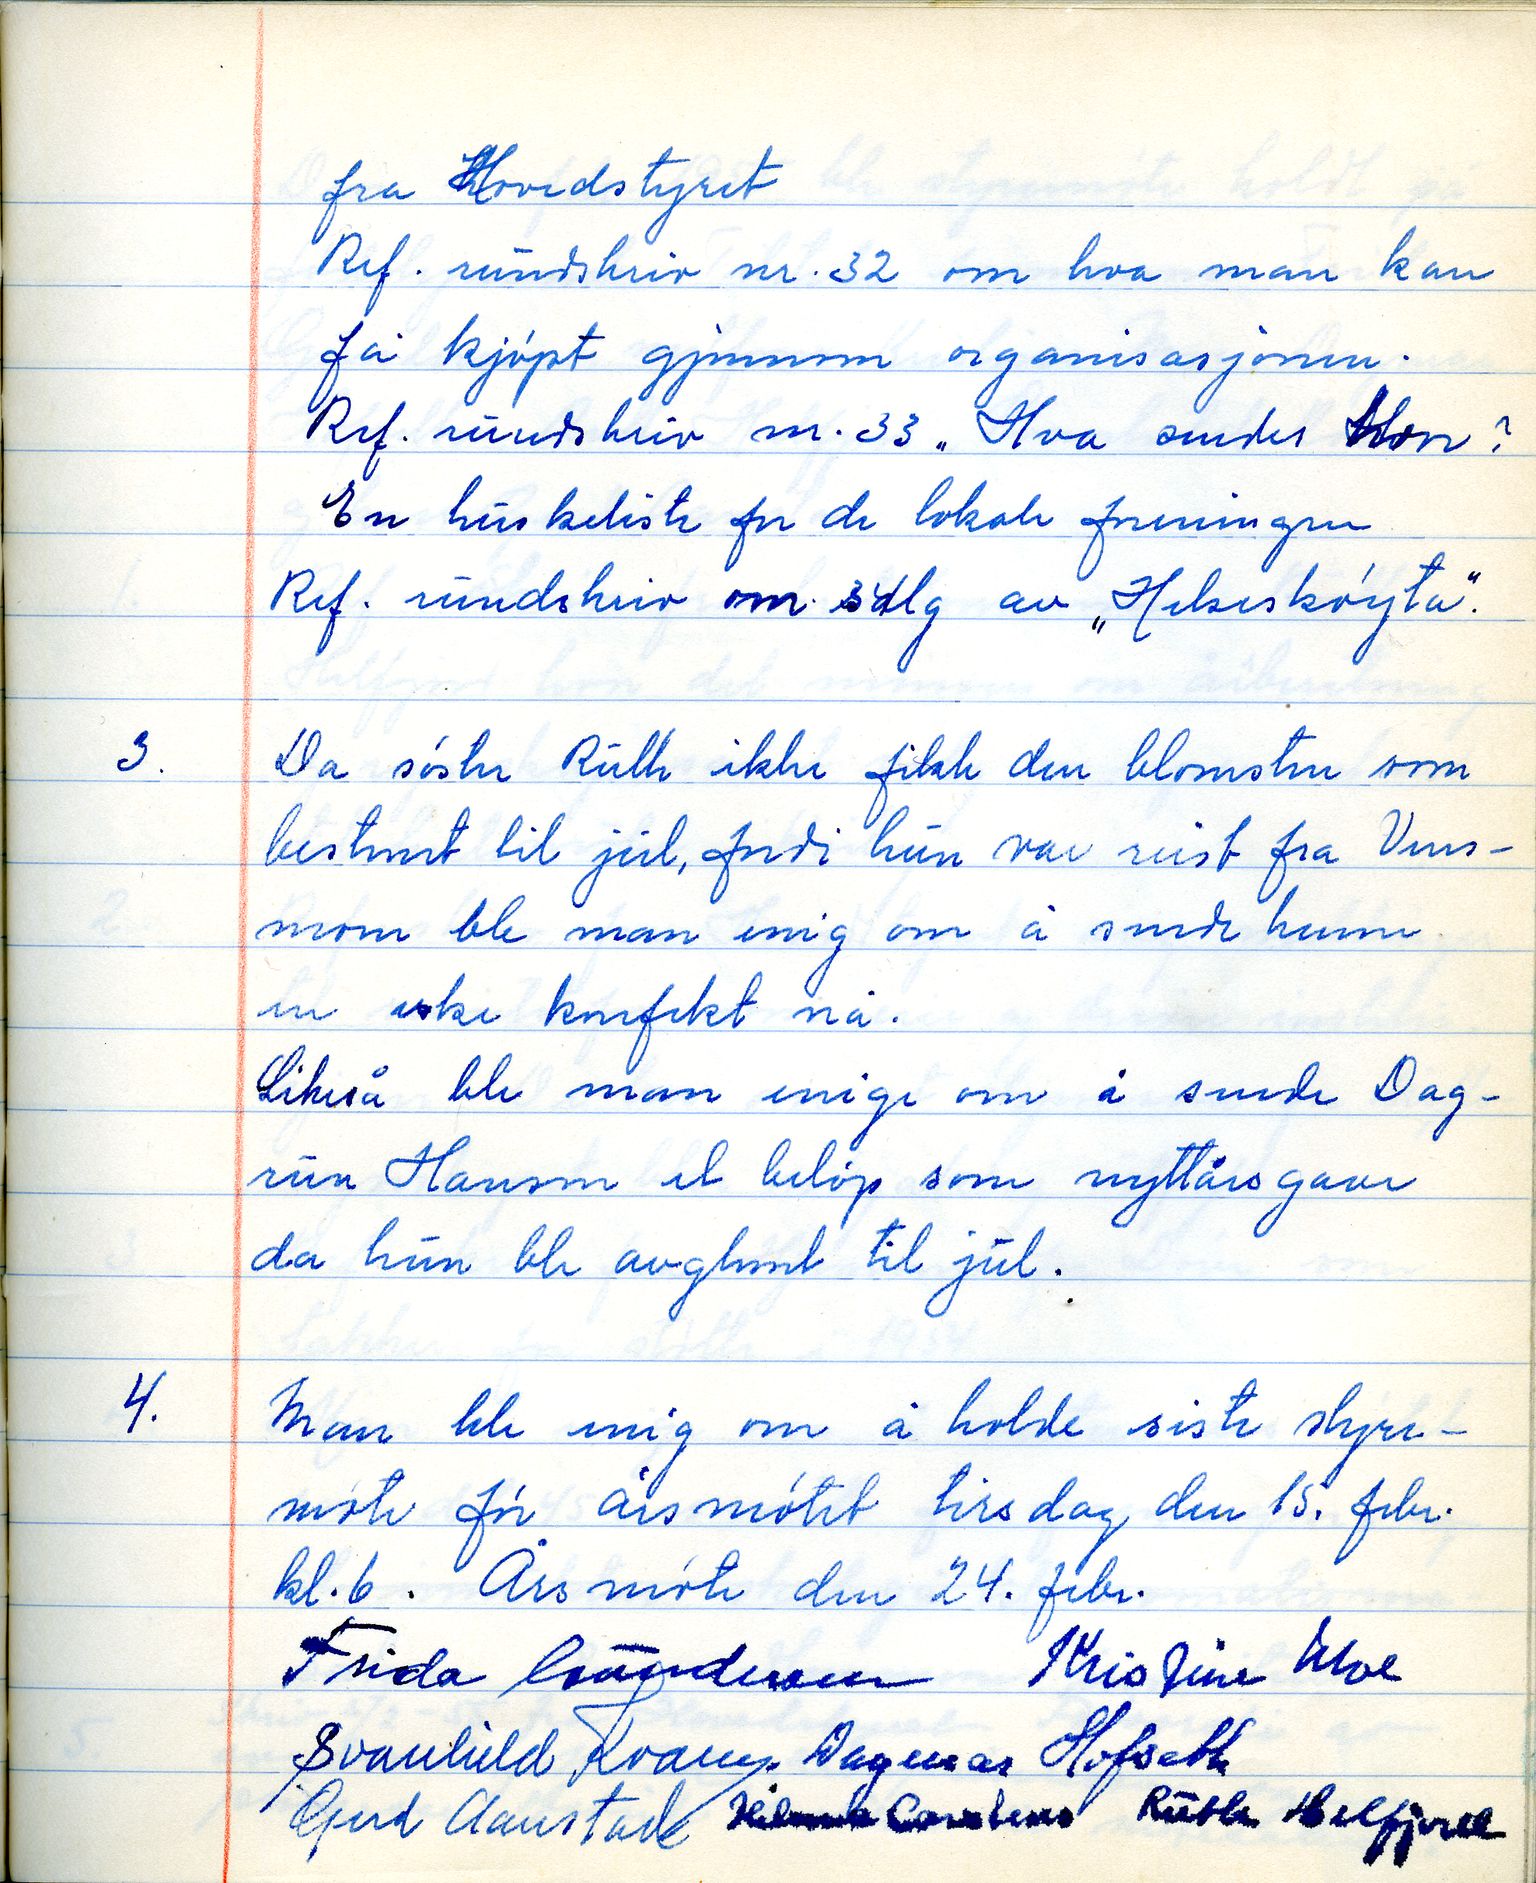 fra Hovedstyret
Ref. rundskriv nr. 32 om hva man kan
få kjøpt gjennom organisasjonen.
Ref. rundskriv nr. 33 „Hva sender
En huskeliste for de lokale foreninger
Ref. rundskriv om salg av „Helseskøyta".
3. Da søster Ruth ikke fikk den blomsten som
bestemt til jul, fordi hun var reist fra Vens-
mom ble man enig om å sende henne
en eske konfekt nå.
Likeså ble man enige om å sende Dag-
run Hanson et beløp som nyttårsgave
da hun ble avglemt til jul.
4. Man ble enig om å holde siste styre-
møte før årsmøtet tirsdag den 15. febr.
kl. 6. Årsmøte den 24. febr.
Frida Kristine Moe
Svanhild Kvam. Dagmar Hofseth
Gerd Aanstad Ruth Helfjord